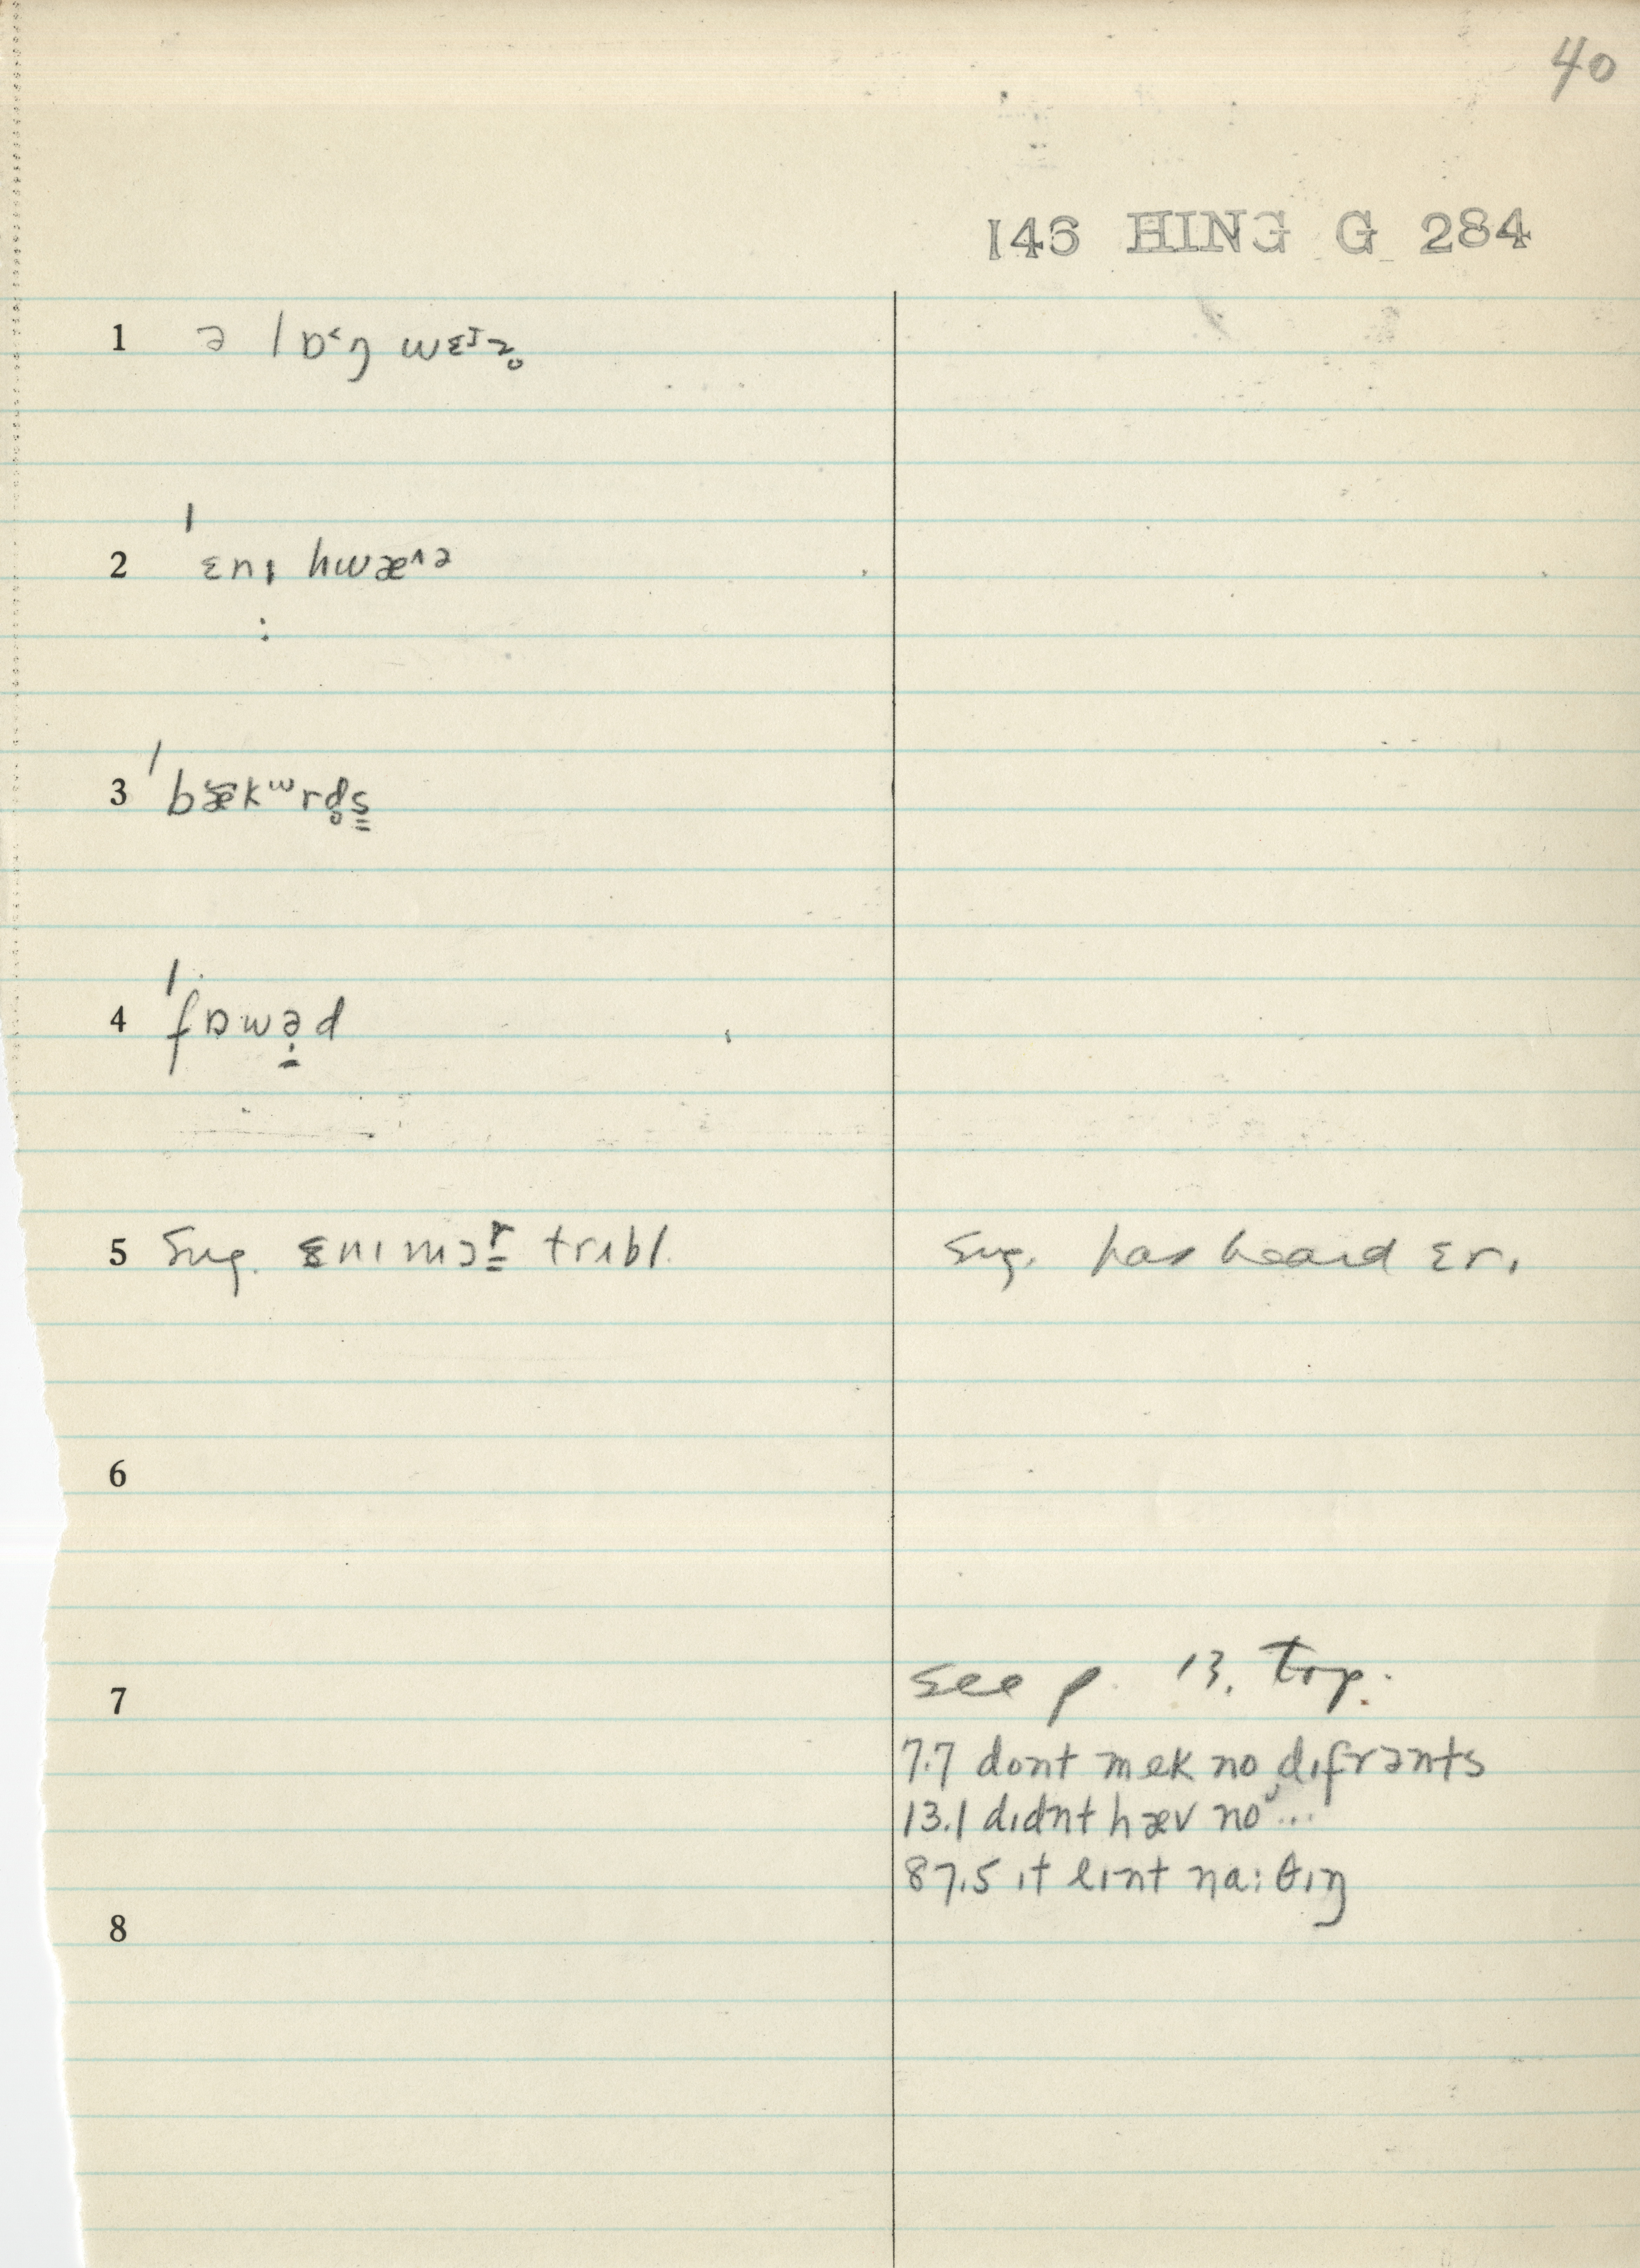 40
146 HING G 284
1 ə lɒ˂ŋ wɛɪz̥
2 ˈɛnɪ hwæ^ə
3 ˈbækʷrd̥s̳
4 ˈfɒwə̣d
5 Sug. ɛnɪmɔr̳ trʌbl.
Sug. has heard ɛrɪ
6
7
see p. 13, top.
7.7 dont mek no dɪfrənts
13.1 dɪdnt hæv no ...
87.5 ɪt eɪnt na:θɪŋ
8